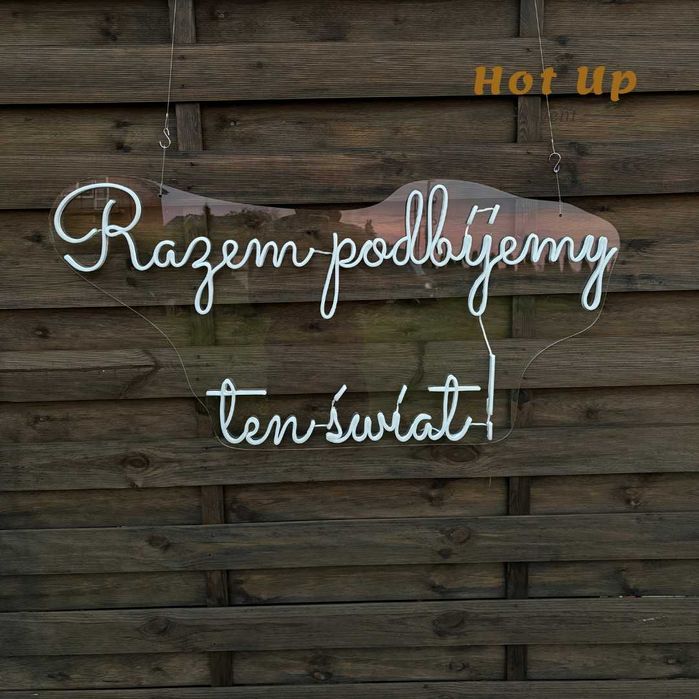 Hot Up
Razem podbijemy
ten świat!